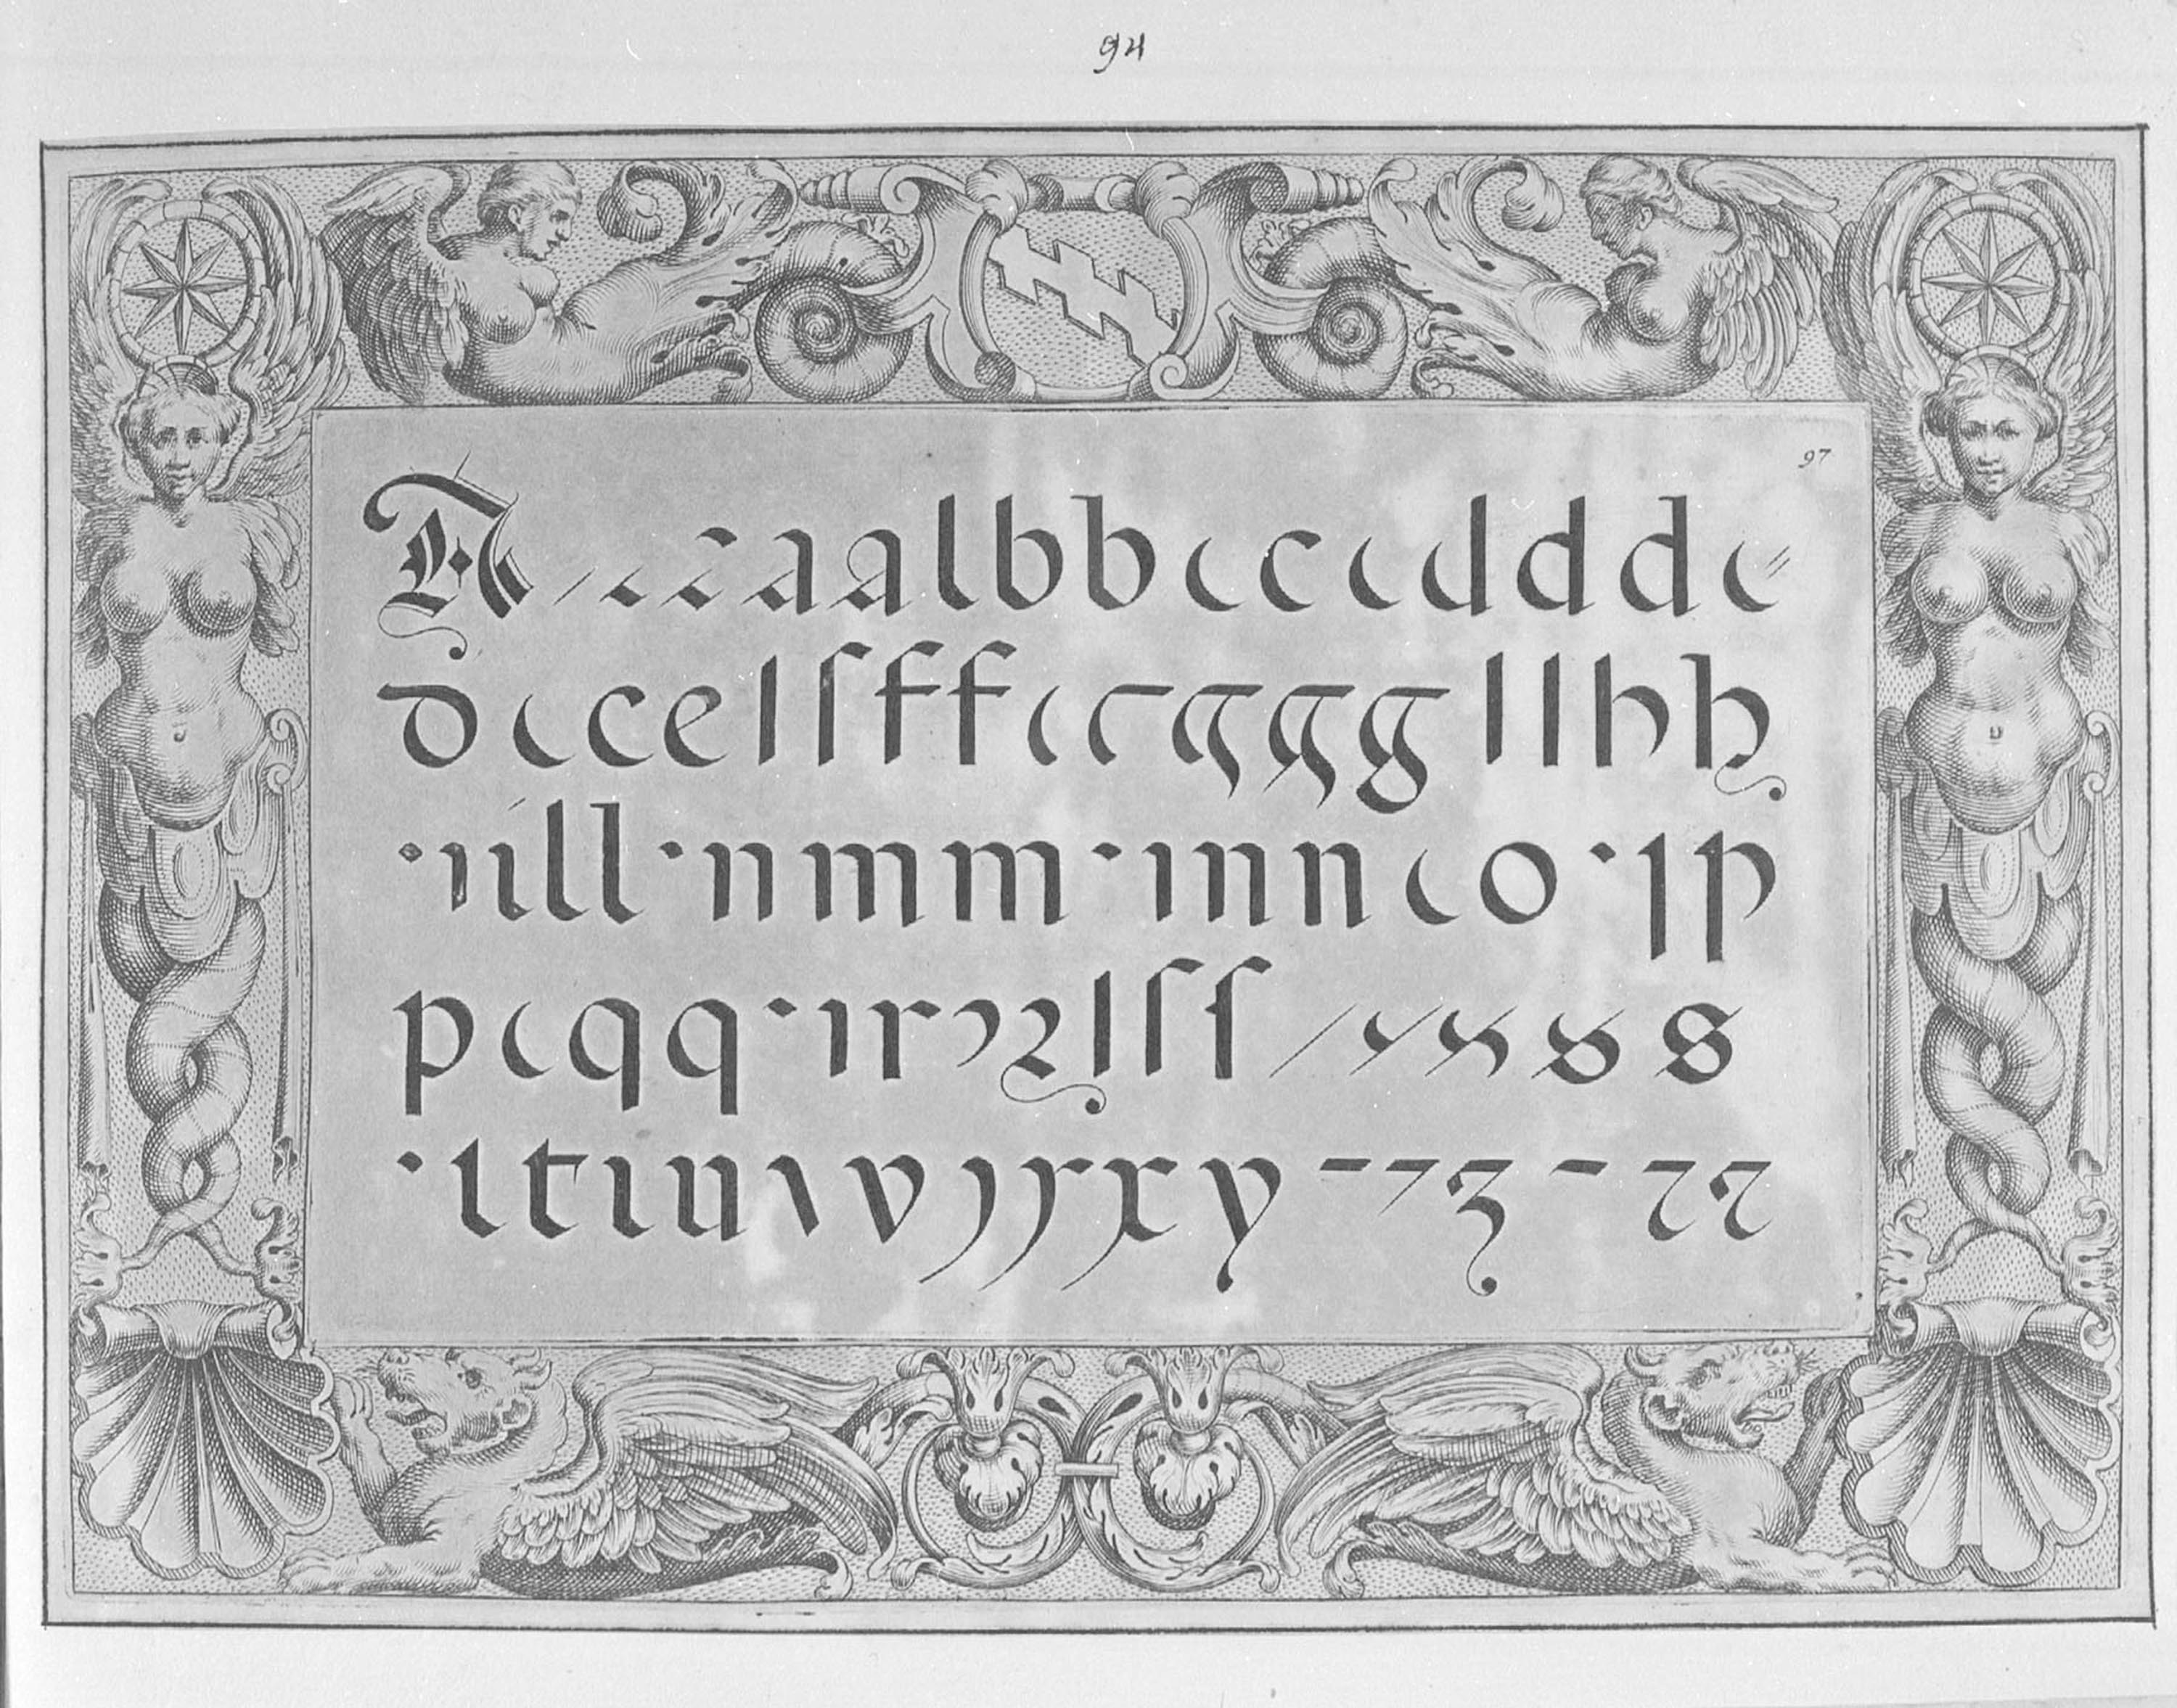 94
97
A a a l b b c c c c d d d c
d c c e l ſ f f c c g g g l l h h
ı i l l n m m ı n n c o ı p
p c q q ı r ꝛ l ſ ſ s s
ı t ı u ı v x y z